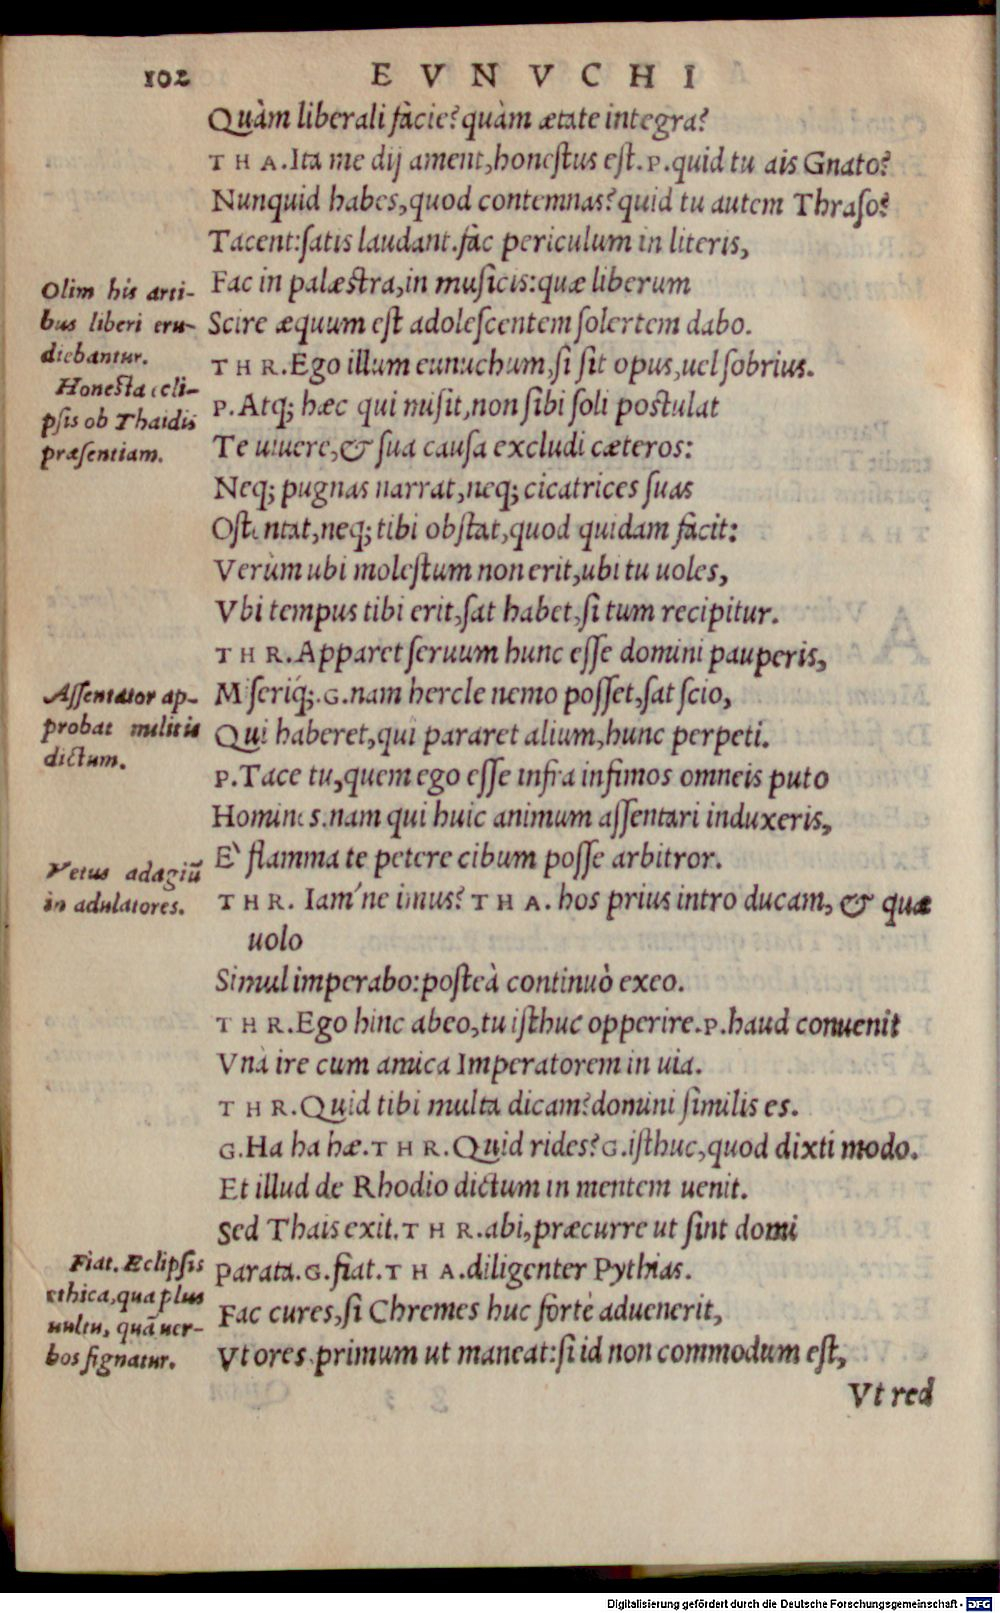 102 EVNVCHI
Quàm liberali facie? quàm ætate integra?
THA. Ita me dij ament, honestus est. P. quid tu ais Gnato?
Nunquid habes, quod contemnas? quid tu autem Thraso?
Tacent: satis laudant. fac periculum in literis,
Fac in palæstra, in musicis: quæ liberum
Scire æquum est adolescentem solertem dabo.
THR. Ego illum eunuchum, si sit opus, uel sobrius.
P. Atq; hæc qui misit, non sibi soli postulat
Te uiuere, & sua causa excludi cæteros:
Neq; pugnas narrat, neq; cicatrices suas
Ostentat, neq; tibi obstat, quod quidam facit:
Verùm ubi molestum non erit, ubi tu uoles,
Vbi tempus tibi erit, sat habet, si tum recipitur.
THR. Apparet seruum hunc esse domini pauperis,
Miseriq́;. G. nam hercle nemo posset, sat scio,
Qui haberet, qui pararet alium, hunc perpeti.
P. Tace tu, quem ego esse infra infimos omneis puto
Homines. nam qui huic animum assentari induxeris,
E` flamma te petere cibum posse arbitror.
THR. Iam´ne imus? THA. hos prius intro ducam, & quæ
uolo
Simul imperabo: posteà continuò exeo.
THR. Ego hinc abeo, tu isthuc opperire. P. haud conuenit
Vnà ire cum amica Imperatorem in uia.
THR. Quid tibi multa dicam? domini similis es.
G. Ha ha hæ. THR. Quid rides? G. isthuc, quod dixti modo.
Et illud de Rhodio dictum in mentem uenit.
Sed Thais exit. THR. abi, præcurre ut sint domi
Parata. G. fiat. THA. diligenter Pythias.
Fac cures, si Chremes huc fortè aduenerit,
Vt ores primum ut maneat: si id non commodum est,
Vt red
Olim his arti-
bus liberi eru-
diebantur.
Honesta ecli-
psis ob Thaidis
præsentiam.
Assentator ap-
probat militis
dictum.
Vetus adagiũ
in adulatores.
Fiat. Eclipsis
ethica, qua plus
uultu, quã uer-
bos signatur.
Digitalisierung gefördert durch die Deutsche Forschungsgemeinschaft - DFG